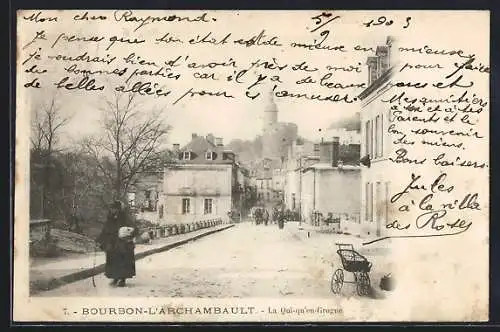 Mon cher Raymond. 5/5 1903
Je pense que ton état est de mieux en mieux
je voudrais bien t'avoir près de moi pour faire
de bonnes parties car il y a de beaux parcs et
de belles allées pour s'amuser.
Mes amitiés
à ton et à tes
Parents et un
bon souvenir
des miens.
Bons baisers.
Jules
à la villa
des Roses
7. - BOURBON-L'ARCHAMBAULT. - La Qui-qu'en-Grogne